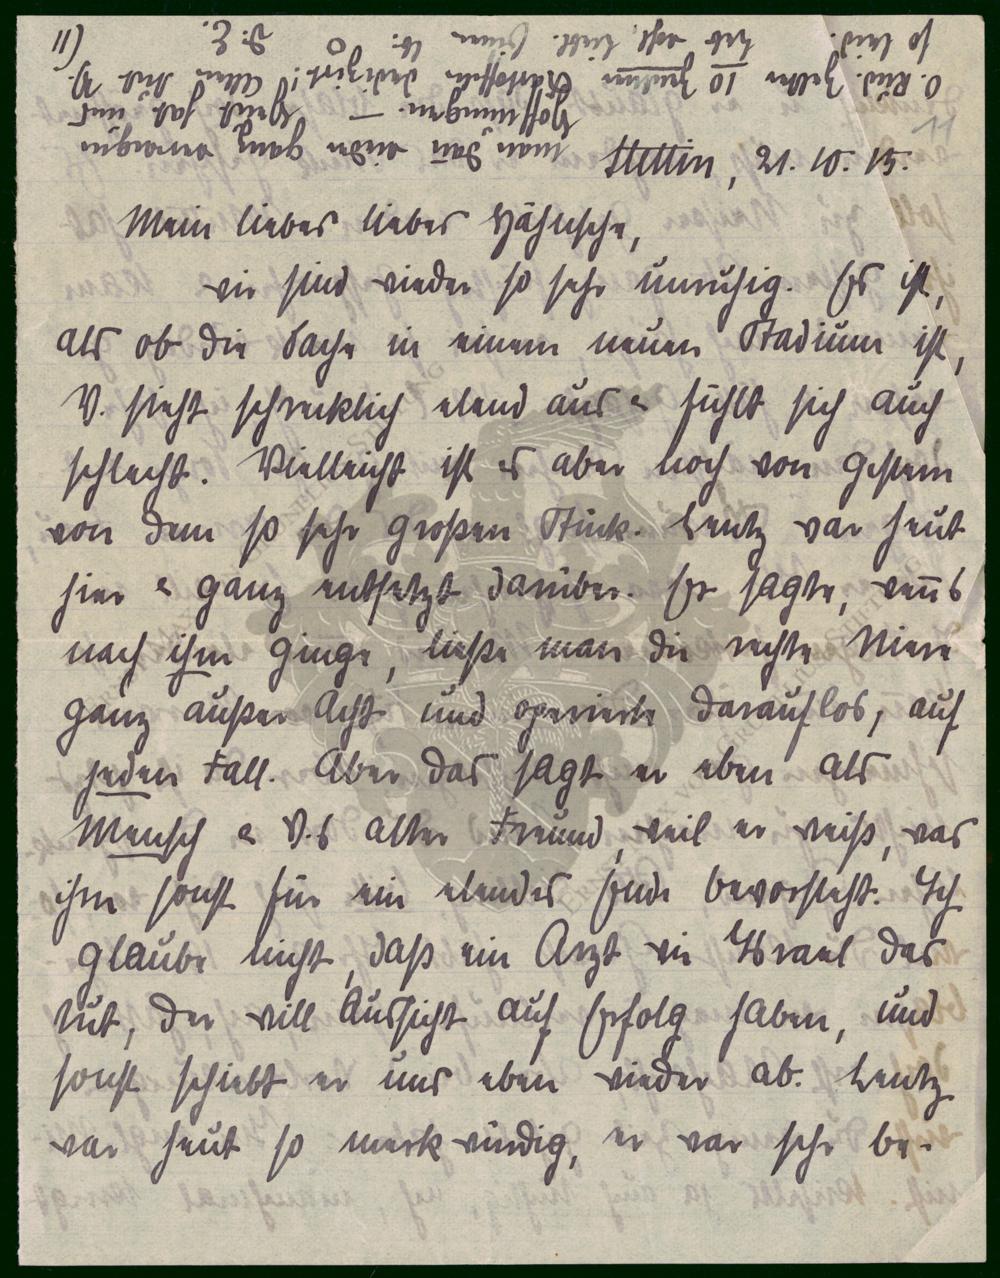 11)
11
man dañ wieder ganz verzweifeln
Hoffnungen. — Heut hab uns
O. Rud. Zelter 10 Zentner Kartoffeln dedizirt! Allen
so leid. Leb
D. E.
Stettin, 21. 10. 15.
Mein liebes liebes Hähnsche,
wir sind wieder so sehr unruhig. Es ist,
als ob die Sache in einem neuen Stadium ist,
V. sieht schrecklich elend aus & fühlt sich auch
schlecht. Vielleicht ist es aber noch von gestern
von dem so sehr großen Stück. Lentz war heut
hier & ganz entsetzt darüber. Er sagte, weñ's
nach ihm ginge, ließe man die rechte Niere
ganz außer Acht und operierte darauflos, auf
jeden Fall. Aber das sagt er eben als
Mensch & V.s alter Freund, weil er weiß, was
ihm sonst für ein elendes Ende bevorsteht. Ich
glaube nicht, daß ein Arzt wie Israel das
tut, der will Aussicht auf Erfolg haben, und
sonst schiebt er uns eben wieder ab. Lentz
war heut so merkwürdig, er war sehr be-